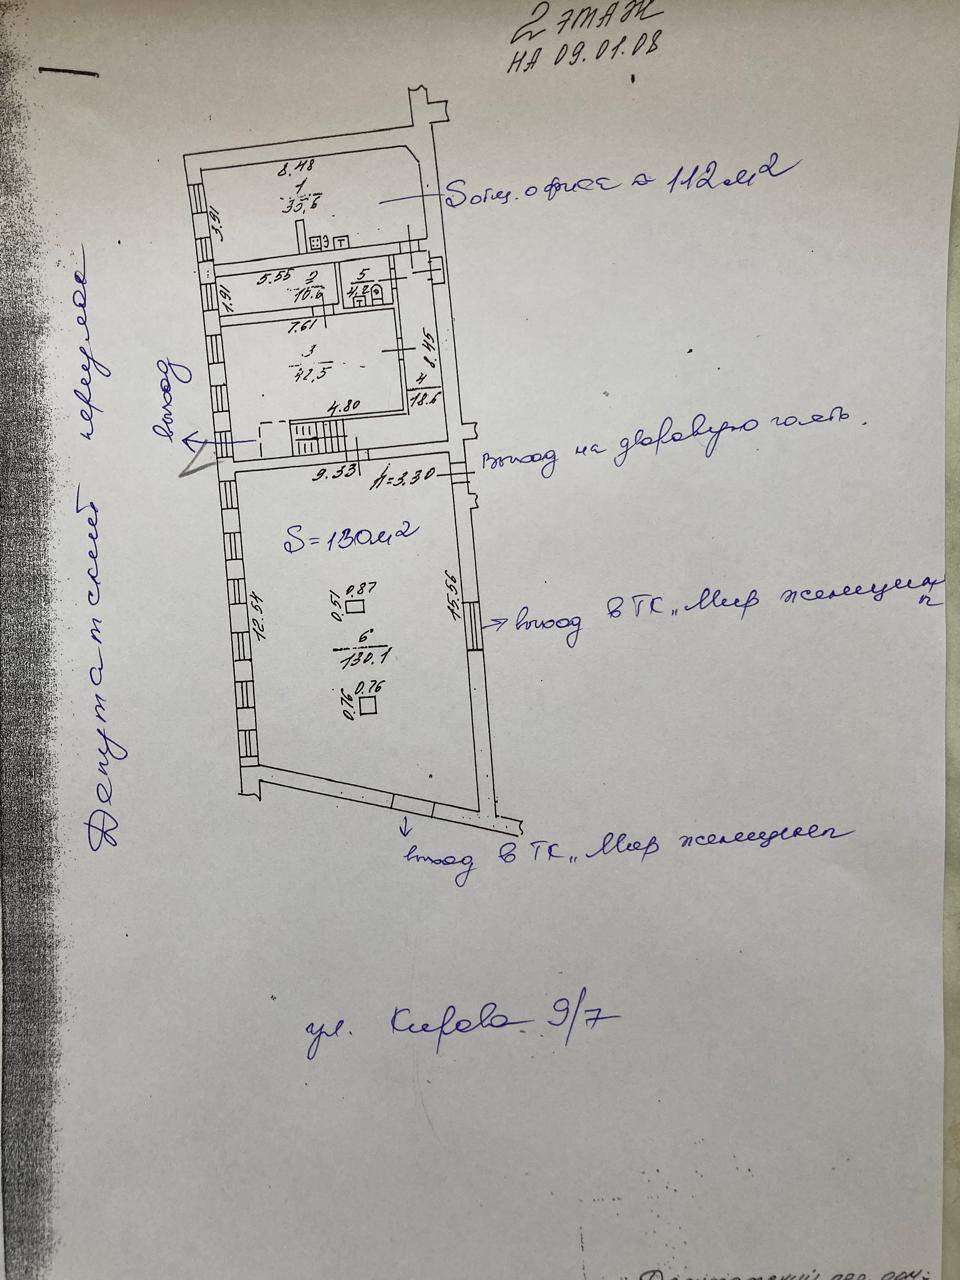 2 ЭТАЖ
НА 09.01.08
8.48
1
35,6
3.91
Э
Т
Sобщ. офиса ≈ 112м2
5.55
2
10.6
1.91
5
4.2
Т
7.61
3
42,5
8.45
4
18.6
4.80
выход
Депутатский переулок
9.53
h=3.30
Выход на дворовую часть.
S=130м2
0.87
0.51
12.54
15.56
6
130.1
0.76
0.76
выход в ТК „Мир женщины"
выход в ТК „Мир женщины"
ул. Кирова 9/7